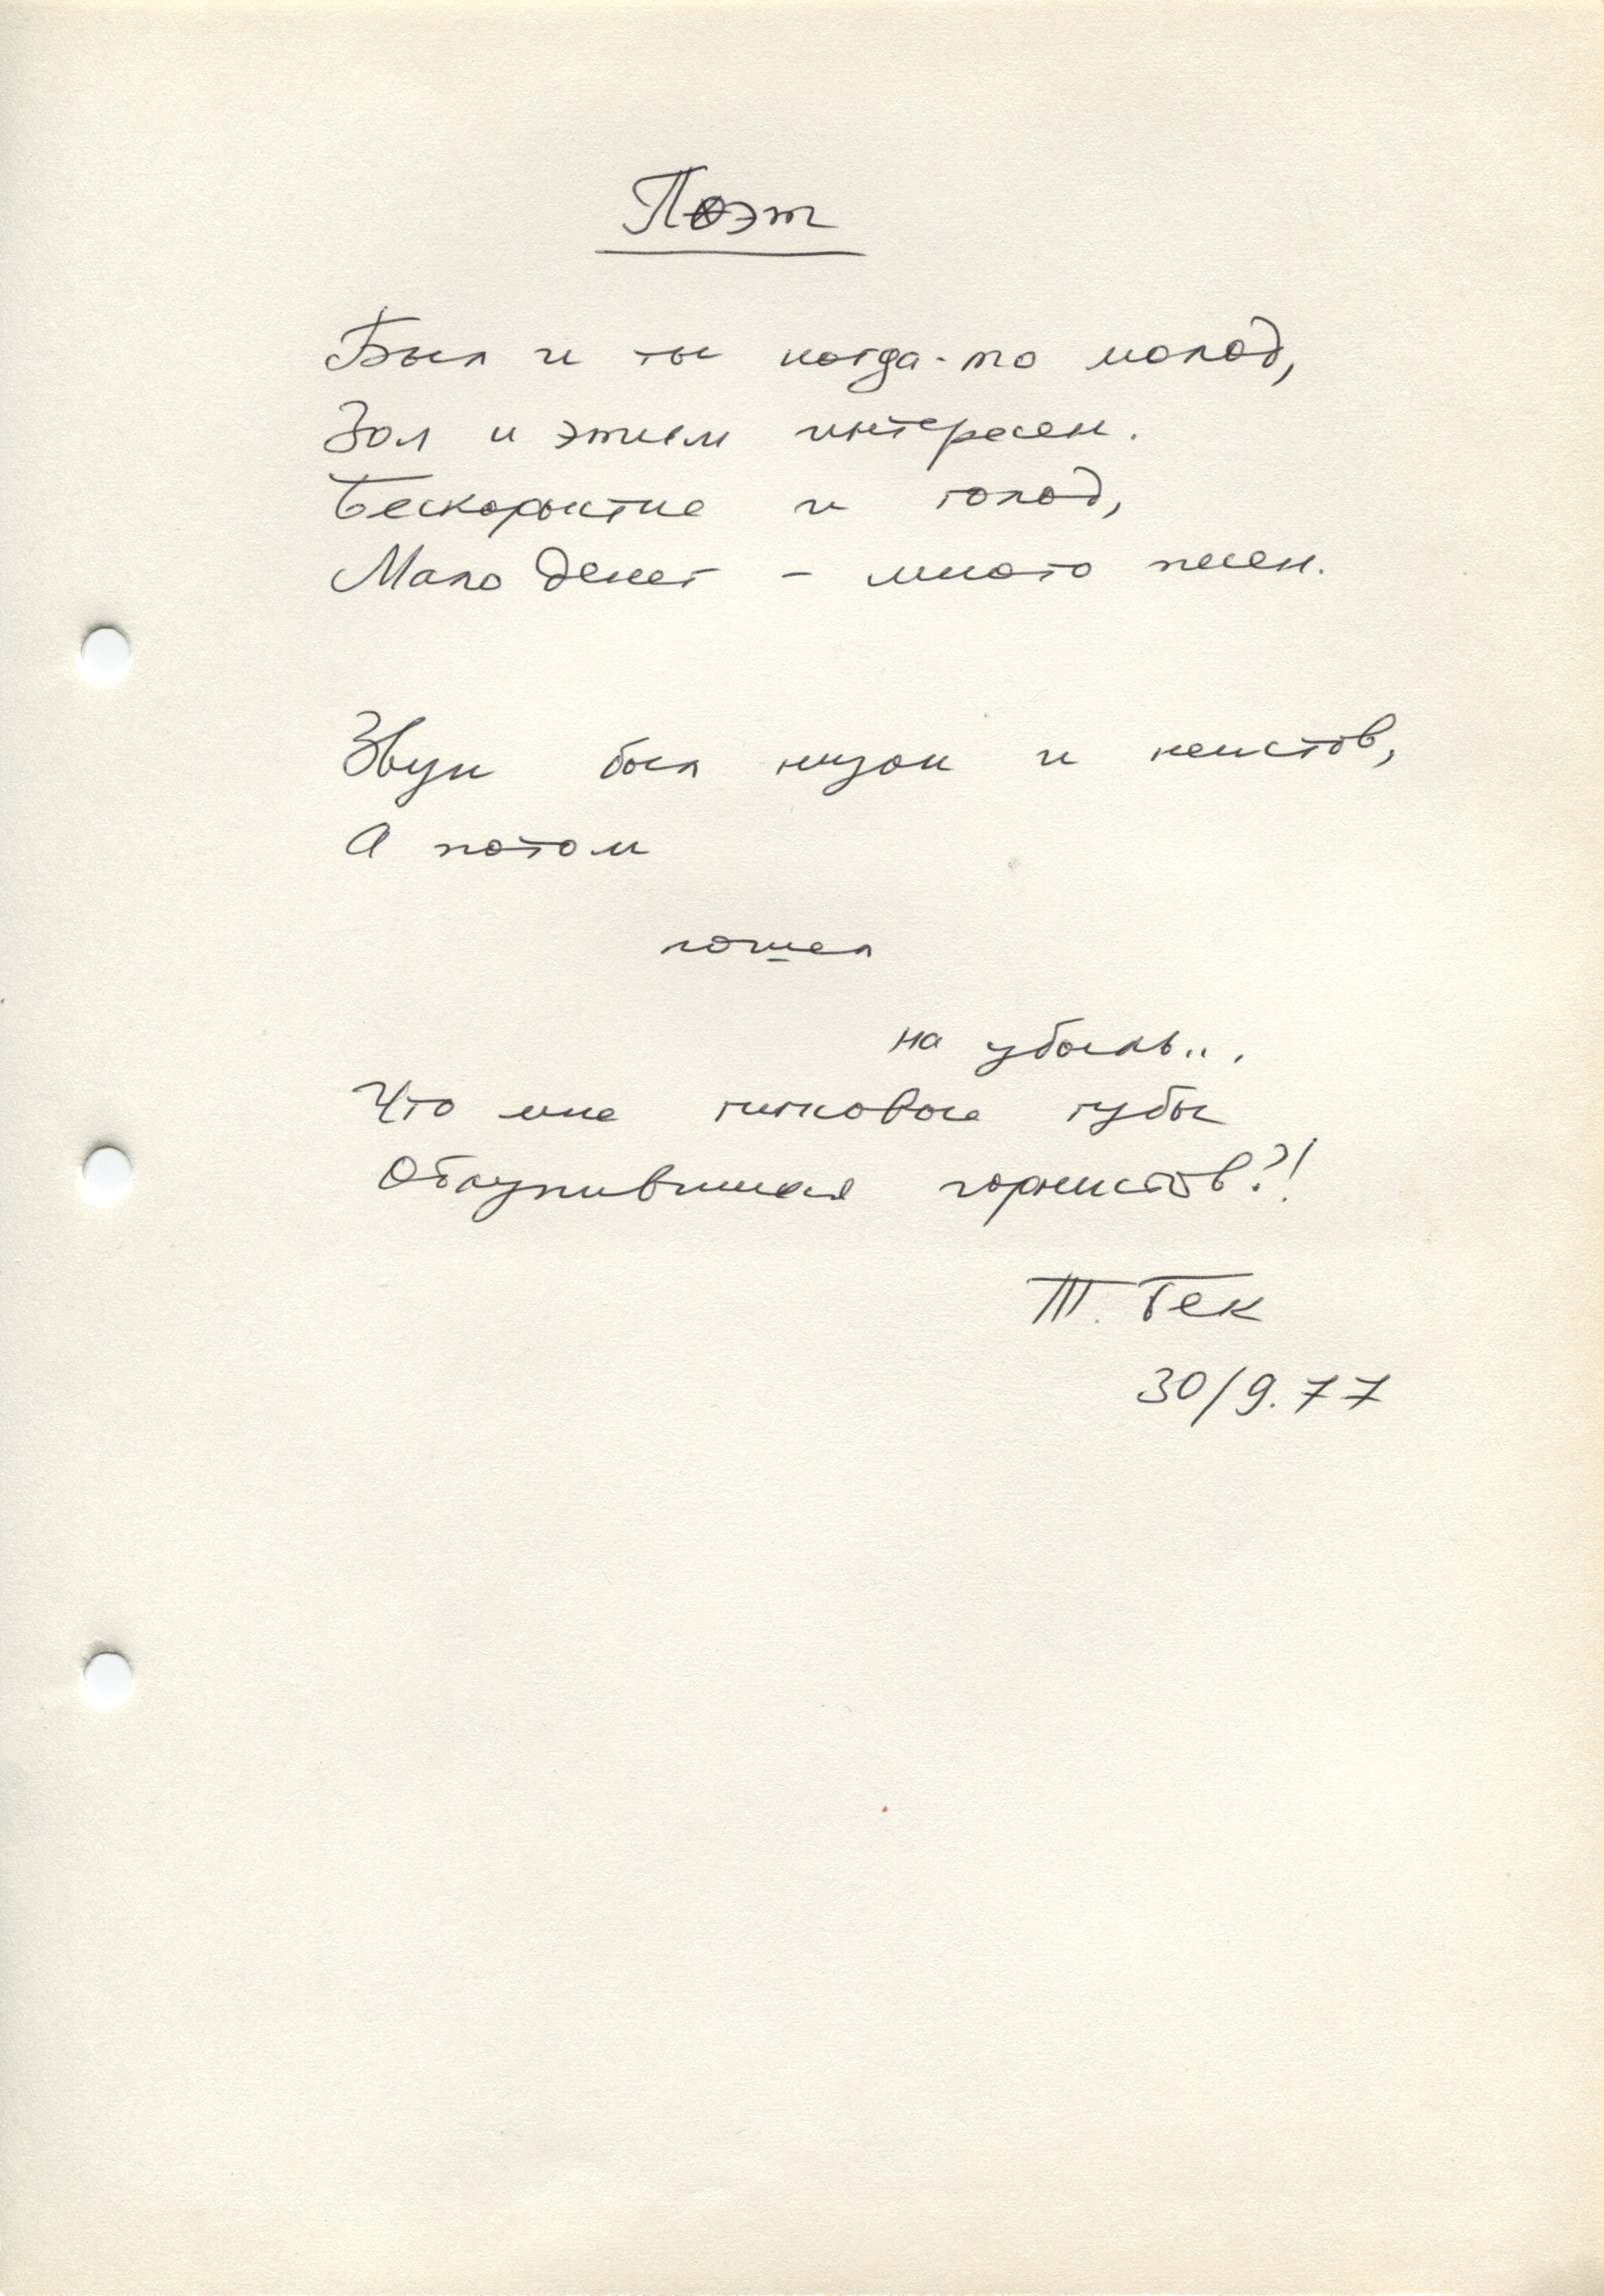 Поэт
Был и ты когда-то молод,
Зол и этим интересен.
Бескорыстие и голод,
Мало денег - много песен.
Звук был низок и неистов,
А потом
пошел
на убыль...
Что мне гипсовые губы
Облупившихся горнистов?!
Т. Бек
30/9.77